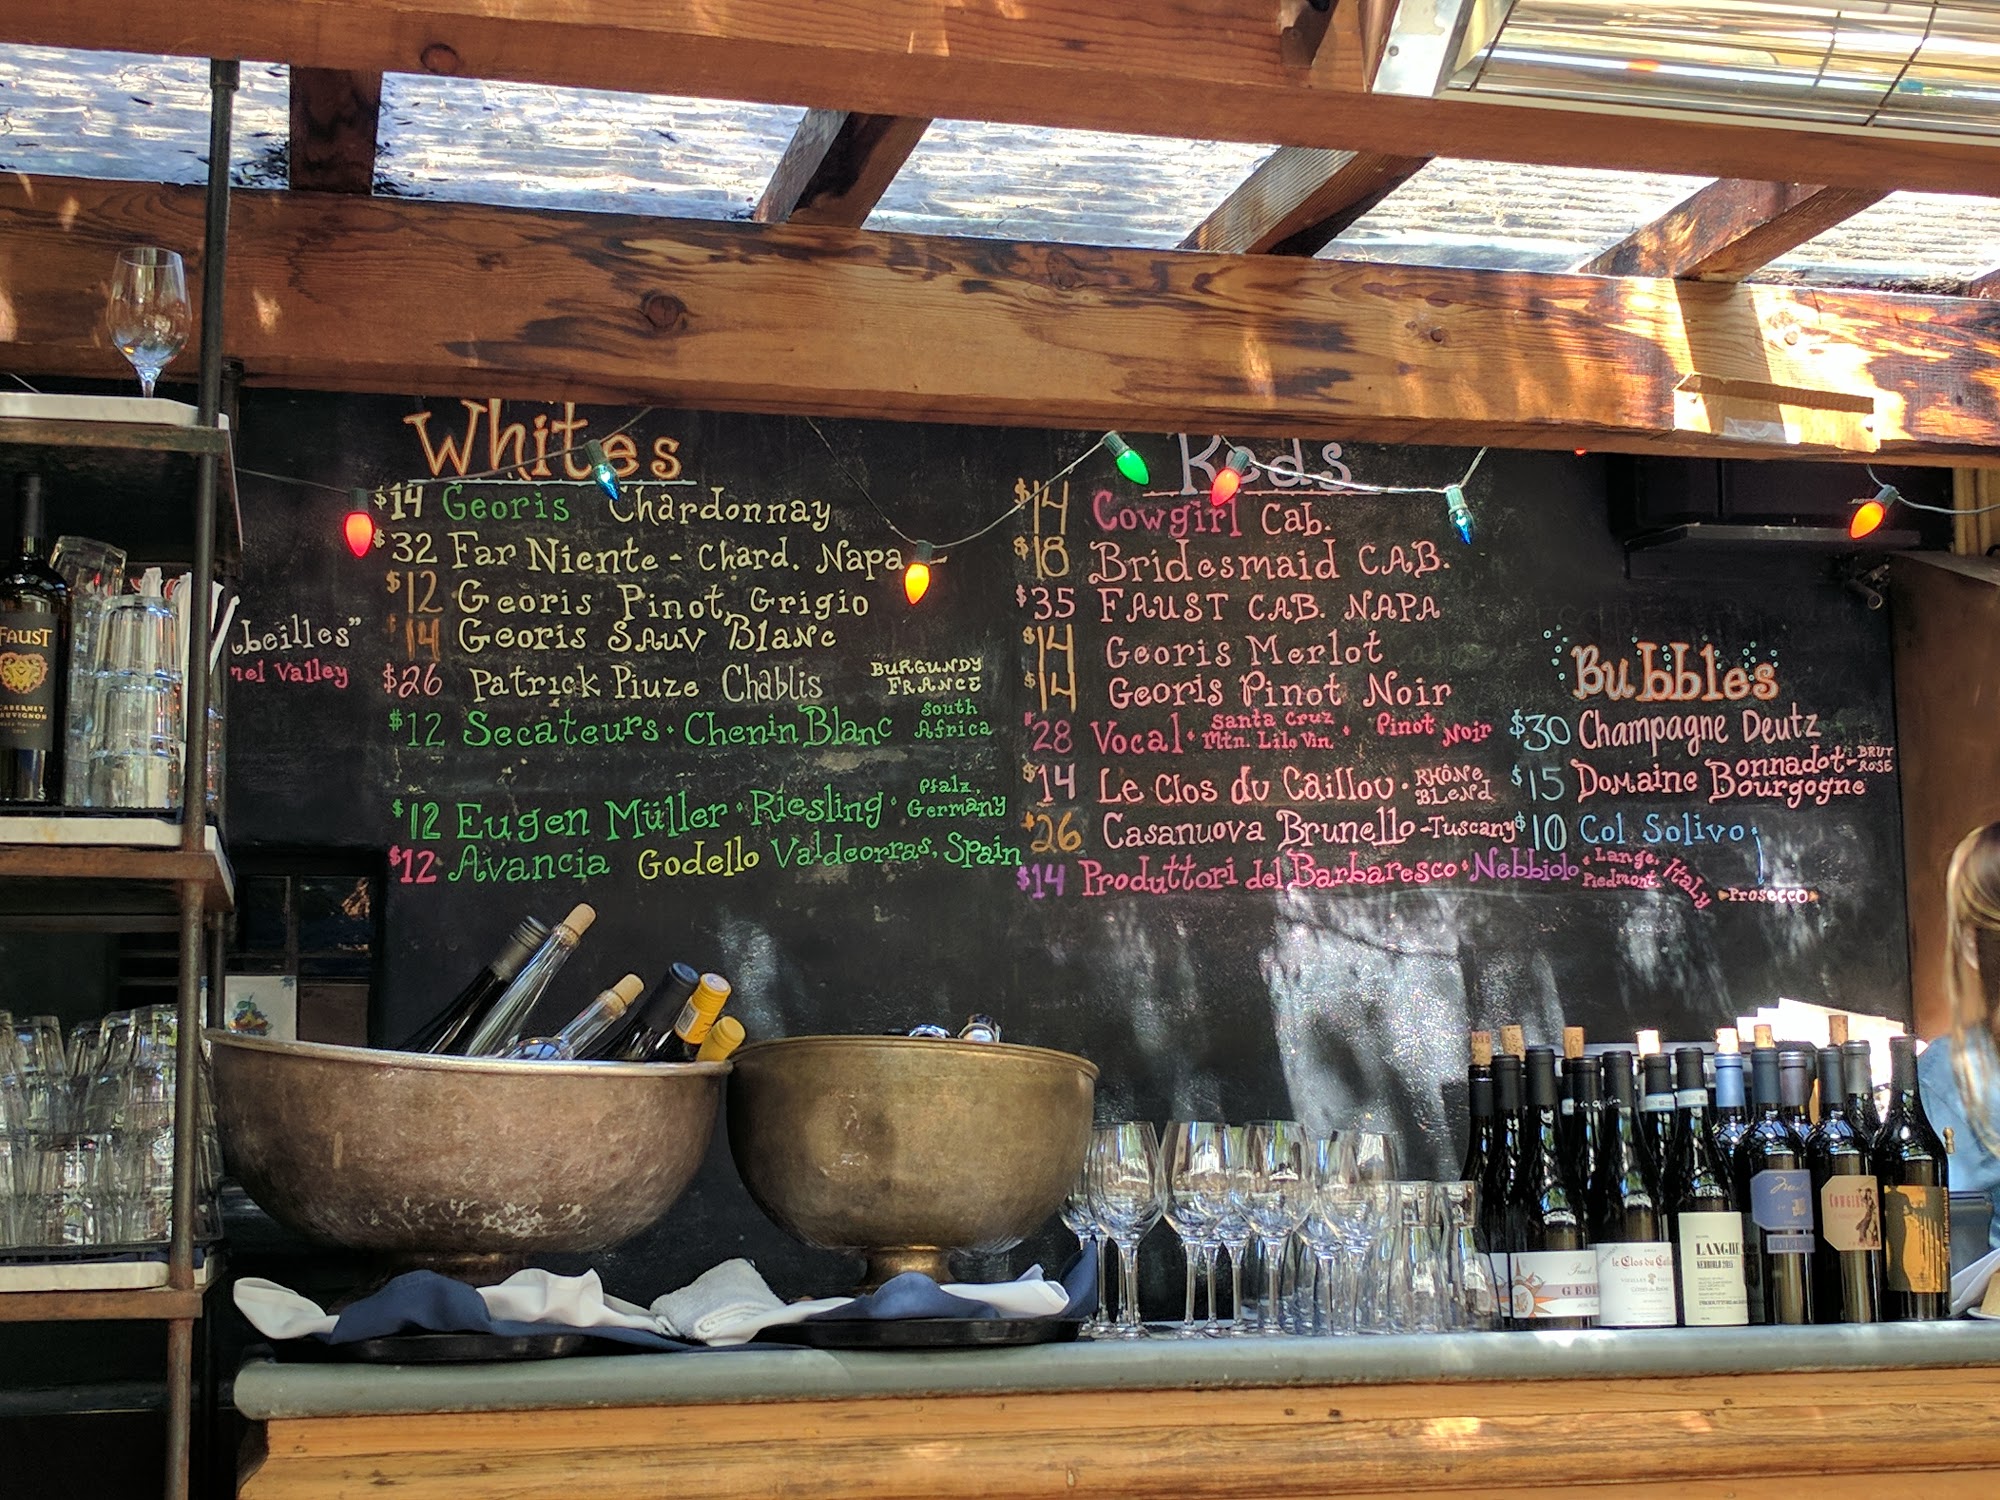 Whites
$14 Georis Chardonnay
$32 Far Niente - Chard. Napa
$12 Georis Pinot Grigio
$14 Georis Sauv Blanc
$26 Patrick Piuze Chablis BURGUNDY FRANCE
$12 Secateurs · Chenin Blanc South Africa
$12 Eugen Müller · Riesling · Pfalz, Germany
$12 Avancia Godello Valdeorras, Spain
Reds
$14 Cowgirl Cab.
$18 Bridesmaid CAB.
$35 FAUST CAB. NAPA
$14 Georis Merlot
$14 Georis Pinot Noir
$28 Vocal · Santa Cruz Mtn. Lilo Vin · Pinot Noir
$14 Le Clos du Caillou · RHÔNE BLEND
$26 Casanuova Brunello - Tuscany
$14 Produttori del Barbaresco · Nebbiolo · Lange, Piedmont, Italy
Bubbles
$30 Champagne Deutz
$15 Domaine Bonnadot - Bourgogne BRUT ROSE
$10 Col Solivo
Prosecco
beilles"
nel Valley
FAUST
CABERNET
SAUVIGNON
GEOR
le Clos du Cail
LANGHE
NEBBIOLO 2015
COWGIRL